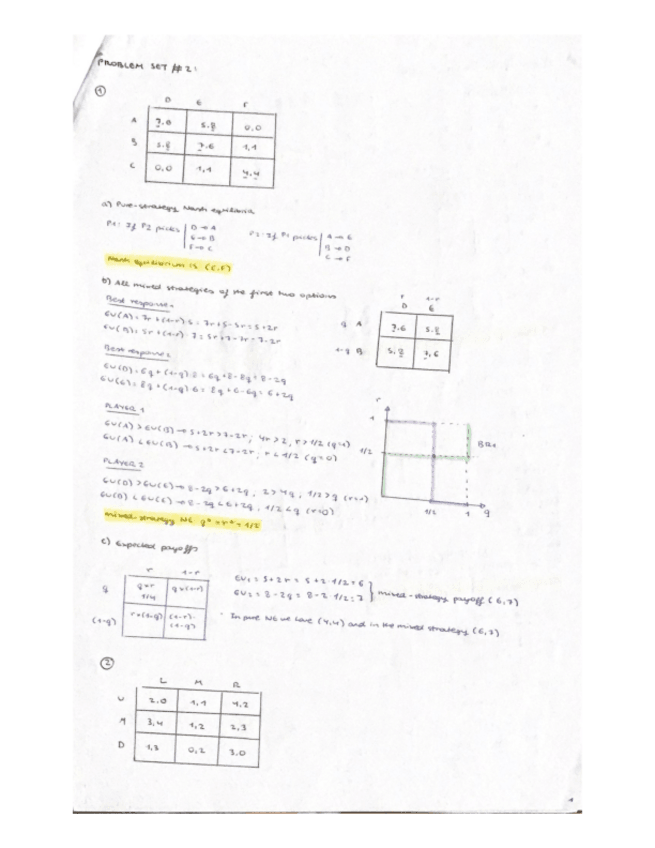 PROBLEM SET #2:
1
D E F
A 7,6 5,8 0,0
B 5,8 7,6 1,1
C 0,0 1,1 4,4
a) Pure-strategy Nash equilibria
P1: If P2 picks D → A P2: If P1 picks A → E
E → B B → D
F → C C → F
Nash equilibrium is (C,F)
b) All mixed strategies of the first two options
Best response 1
EU(A) = 7r + (1-r)·5 = 7r+5-5r = 5+2r
EU(B) = 5r + (1-r)·7 = 5r+7-7r = 7-2r
r 1-r
D E
q A 7,6 5,8
1-q B 5,8 7,6
Best response 2
EU(D) = 6q + (1-q)·8 = 6q+8-8q = 8-2q
EU(E) = 8q + (1-q)·6 = 8q+6-6q = 6+2q
PLAYER 1
EU(A) > EU(B) → 5+2r > 7-2r; 4r > 2, r > 1/2 (q=1)
EU(A) < EU(B) → 5+2r < 7-2r; r < 1/2 (q=0)
PLAYER 2
EU(D) > EU(E) → 8-2q > 6+2q, 2 > 4q, 1/2 > q (r=1)
EU(D) < EU(E) → 8-2q < 6+2q, 1/2 < q (r=0)
r
1
1/2
1/2 1 q
mixed-strategy NE q* = r* = 1/2
c) Expected payoffs
r 1-r
q q×r 1/4 q×(1-r)
(1-q) r×(1-q) (1-r)·(1-q)
EU1 = 5+2r = 5+2·1/2 = 6
EU2 = 8-2q = 8-2·1/2 = 7
mixed-strategy payoff (6,7)
· In pure NE we have (4,4) and in the mixed strategy (6,7)
2
L M R
U 2,0 1,1 4,2
M 3,4 1,2 2,3
D 1,3 0,2 3,0
1